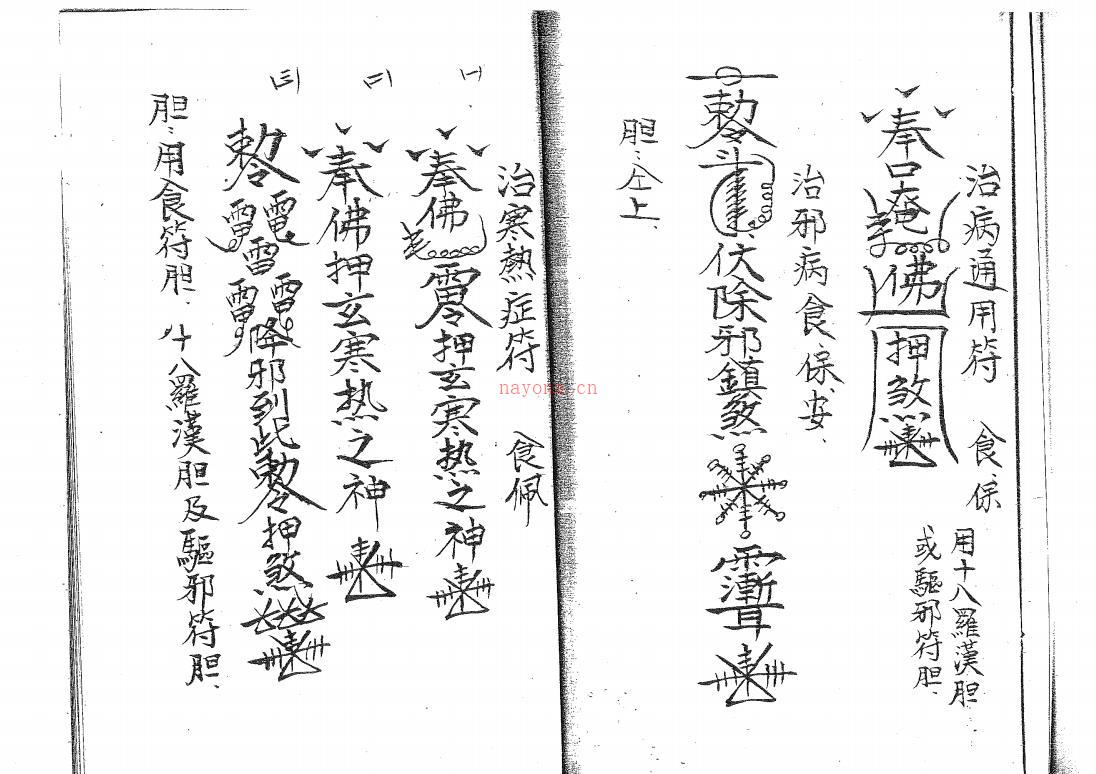 治病通用符 食、保
用十八羅漢胆
或驅邪符胆、
奉 佛 押煞
治邪病食、保、安、
勅令 伏除邪鎮煞
胆:仝上、
治寒熱症符 食佩
(一)
奉佛 押玄寒热之神
(二)
奉佛押玄寒热之神
(三)
勅令雷電雷雷電降邪到此勅令押煞
胆:用食符胆、十八羅漢胆及驅邪符胆、
nayona.cn